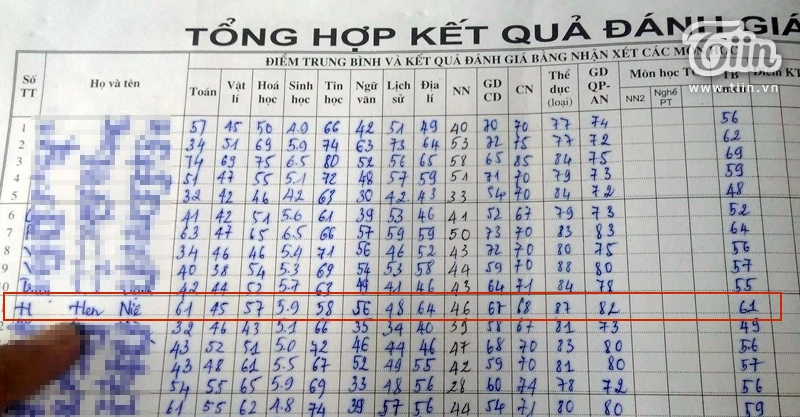 Tiin
www.tiin.vn
TỔNG HỢP KẾT QUẢ ĐÁNH GIÁ
ĐIỂM TRUNG BÌNH VÀ KẾT QUẢ ĐÁNH GIÁ BẰNG NHẬN XÉT CÁC MÔN HỌC
Số TT Họ và tên Toán Vật lí Hoá học Sinh học Tin học Ngữ văn Lịch sử Địa lí NN GD CD CN Thể dục (loại) GD QP-AN Môn học TC NN2 Nghề PT TB Điểm KT
1 51 45 50 4.9 66 42 51 49 40 70 70 77 74 56
2 34 51 69 5.9 74 63 73 64 53 72 75 77 72 62
3 74 69 75 6.5 80 52 56 65 58 65 85 84 75 69
4 51 47 55 5.1 72 48 57 59 51 71 70 79 73 59
5 32 42 46 4.2 63 30 42 43 33 54 70 84 72 48
6 41 42 51 5.6 61 39 53 46 41 52 67 79 73 52
7 63 47 65 6.5 66 57 59 59 50 73 70 83 83 64
8 34 46 46 5.4 71 56 46 52 43 72 70 80 75 56
9 40 38 54 5.3 69 54 53 58 44 59 70 88 80 57
42 44 52 5.7 63 49 41 46 43 64 71 84 78 55
H Hen Niê 61 45 57 5.9 58 56 48 64 46 67 68 87 82 61
32 46 43 5.1 66 35 34 40 39 58 67 81 73 49
43 52 51 5.0 72 46 44 46 47 68 70 83 80 56
43 48 61 5.5 67 52 49 55 42 59 70 81 80 57
54 55 65 5.9 69 33 48 56 28 60 74 78 72 56
61 55 62 4.8 74 39 57 56 44 54 71 80 80 59